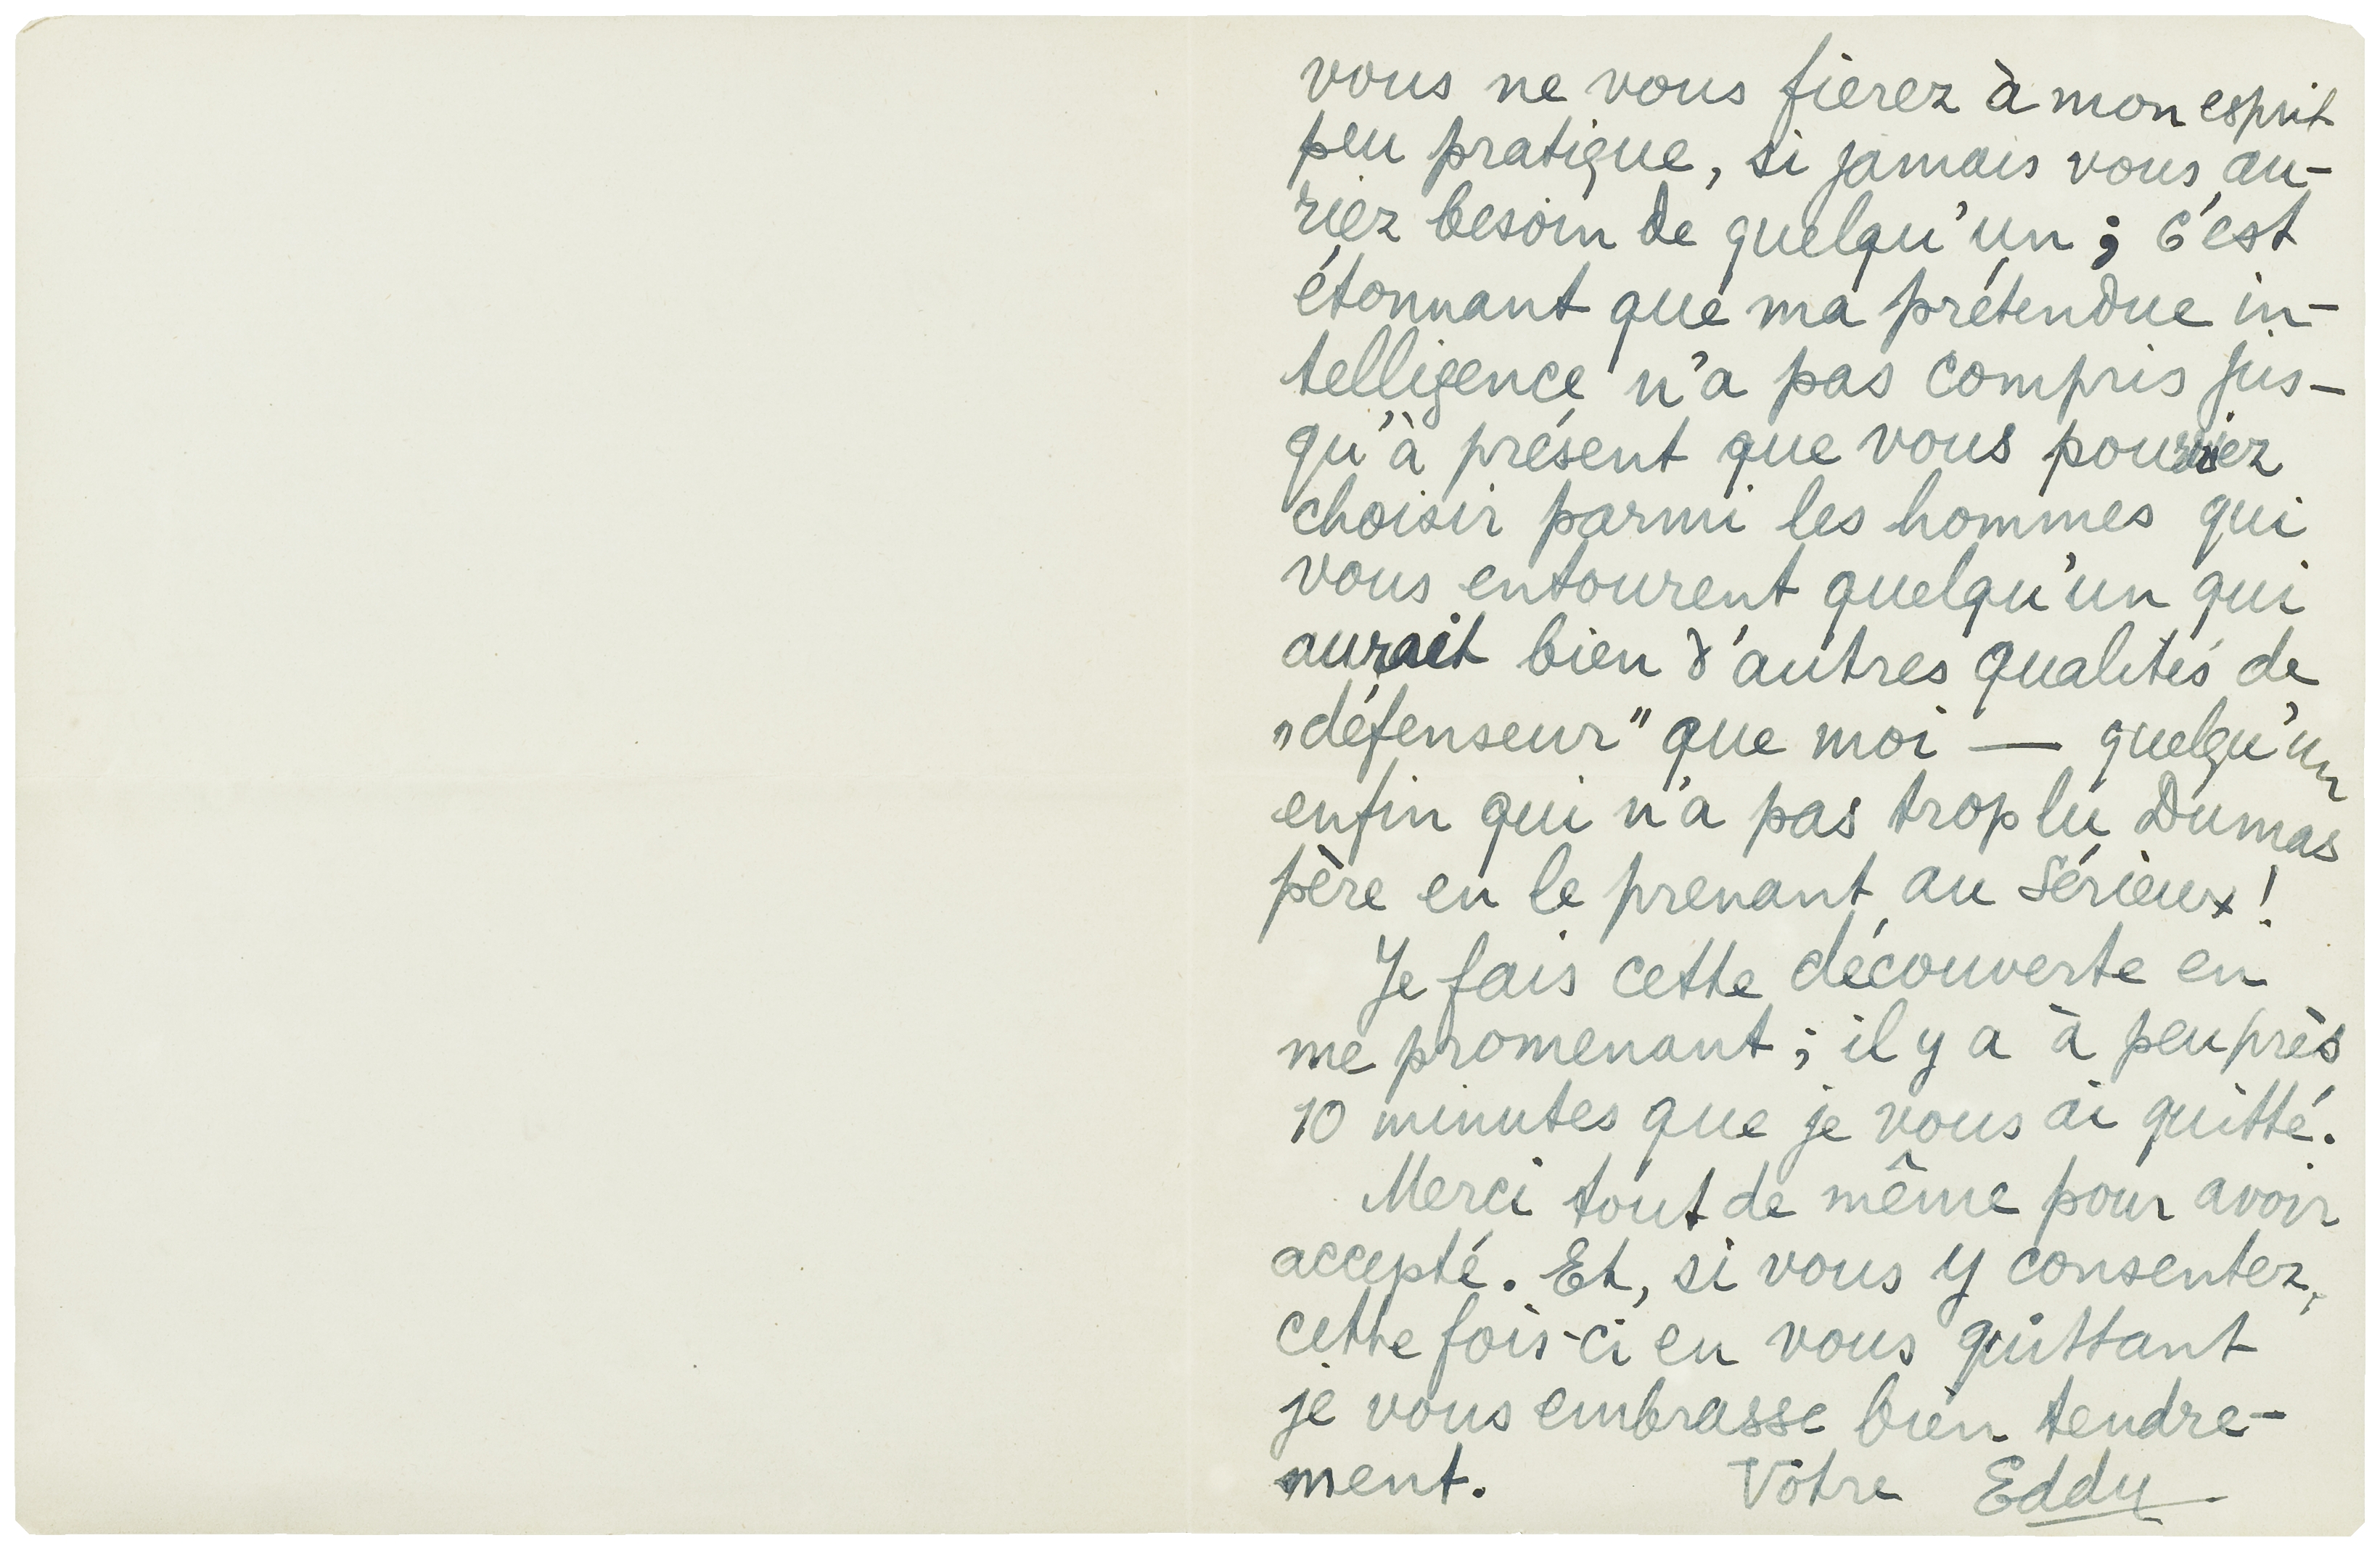 vous ne vous fierez à mon esprit
peu pratique, si jamais vous au-
riez besoin de quelqu'un ; c'est
étonnant que ma prétendue in-
telligence n'a pas compris jus-
qu'à présent que vous pourriez
choisir parmi les hommes qui
vous entourent quelqu'un qui
aurait bien d'autres qualités de
„défenseur" que moi — quelqu'un
enfin qui n'a pas trop lu Dumas
père en le prenant au sérieux!
Je fais cette découverte en
me promenant ; il y a à peu près
10 minutes que je vous ai quitté.
Merci tout de même pour avoir
accepté. Et, si vous y consentez,
cette fois-ci en vous quittant
je vous embrasse bien tendre-
ment. Vôtre Eddy